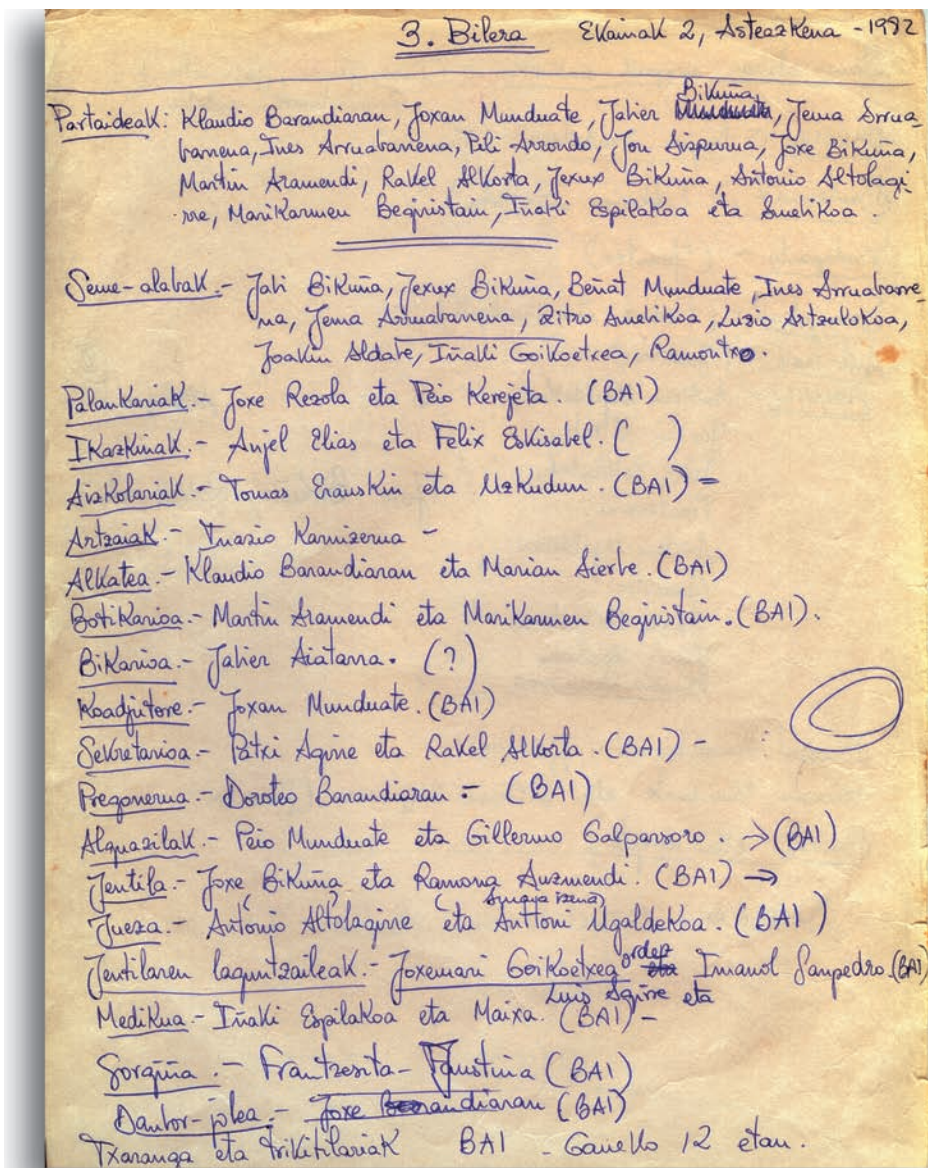 3. Bilera Ekainak 2, Asteazkena - 1982
Partaideak: Klaudio Barandiaran, Joxan Munduate, Jabier Bikuña, Jema Arrua-
barrena, Ines Arruabarrena, Pili Arrondo, Jon Aizpurua, Joxe Bikuña,
Martin Aramendi, Rakel Alkorta, Jexux Bikuña, Antonio Altolagi-
rre, Marikarmen Begiristain, Iñaki Espilakoa eta Amelikoa.
Seme-alabak.- Jabi Bikuña, Jexux Bikuña, Beñat Munduate, Ines Arruabarre-
na, Jema Arruabarrena, Zitro Amelikoa, Luzio Artzulokoa,
Joakin Aldare, Iñaki Goikoetxea, Ramontxo.
Palankariak.- Joxe Rezola eta Peio Kerejeta. (BAI)
Ikazkinak.- Anjel Elias eta Felix Eskisabel. ( )
Aizkolariak.- Tomas Erauskin eta Uzkudun. (BAI) =
Artzaiak.- Inazio Karnizerua -
Alkatea.- Klaudio Barandiaran eta Marian Sierbe. (BAI)
Botikarioa.- Martin Aramendi eta Marikarmen Begiristain. (BAI).
Bikarioa.- Jabier Aiatarra. (?)
Koadjutore.- Joxan Munduate. (BAI)
Sekretarioa.- Patxi Agirre eta Rakel Alkorta. (BAI) -
Pregonerua.- Doroteo Barandiaran :- (BAI)
Alguazilak.- Peio Munduate eta Gillermo Galparsoro. → (BAI)
Jentila.- Joxe Bikuña eta Ramona Auzmendi. (BAI) →
Jueza.- Antonio Altolagirre eta Anttoni Ugaldekoa. (BAI)
Jentilaren laguntzaileak.- Joxemari Goikoetxea ordez Imanol Sanpedro (BAI)
Luis Agirre eta
Medikua.- Iñaki Espilakoa eta Maixa. (BAI) -
Sorgiña.- Frantzesita - Faustina (BAI)
Danbor-jolea.- Joxe Barandiaran (BAI)
Txaranga eta trikitilariak BAI - Goizeko 12 etan.